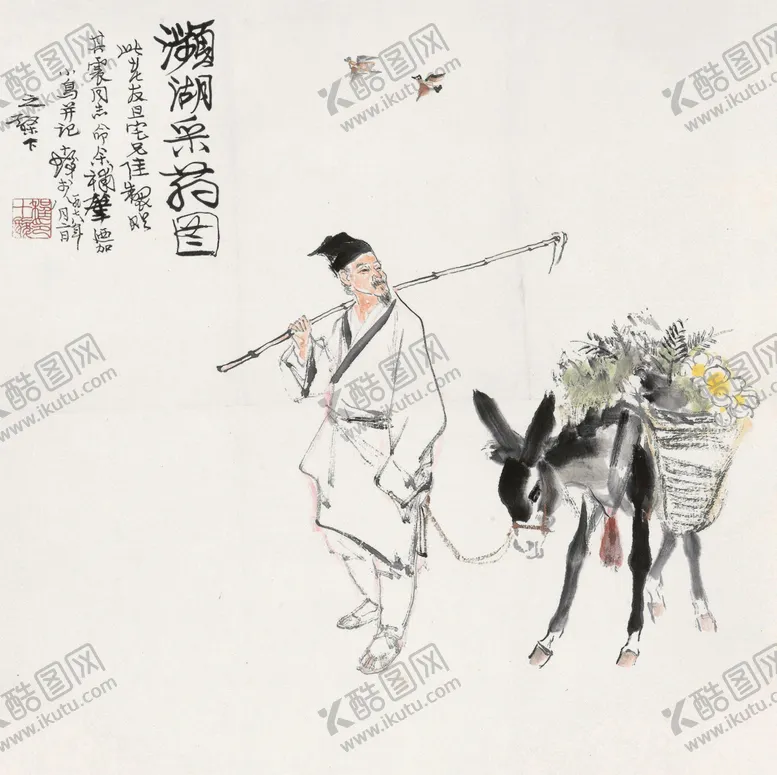 瀕湖采药图
此老友旦宅兄佳製
其震同志命余補筆迺加
小鳥并记
八月二日
酷图网
www.ikutu.com
酷图网
www.ikutu.com
酷图网
www.ikutu.com
酷图网
www.ikutu.com
酷图网
www.ikutu.com
酷图网
www.ikutu.com
酷图网
www.ikutu.com
酷图网
www.ikutu.com
酷图网
www.ikutu.com